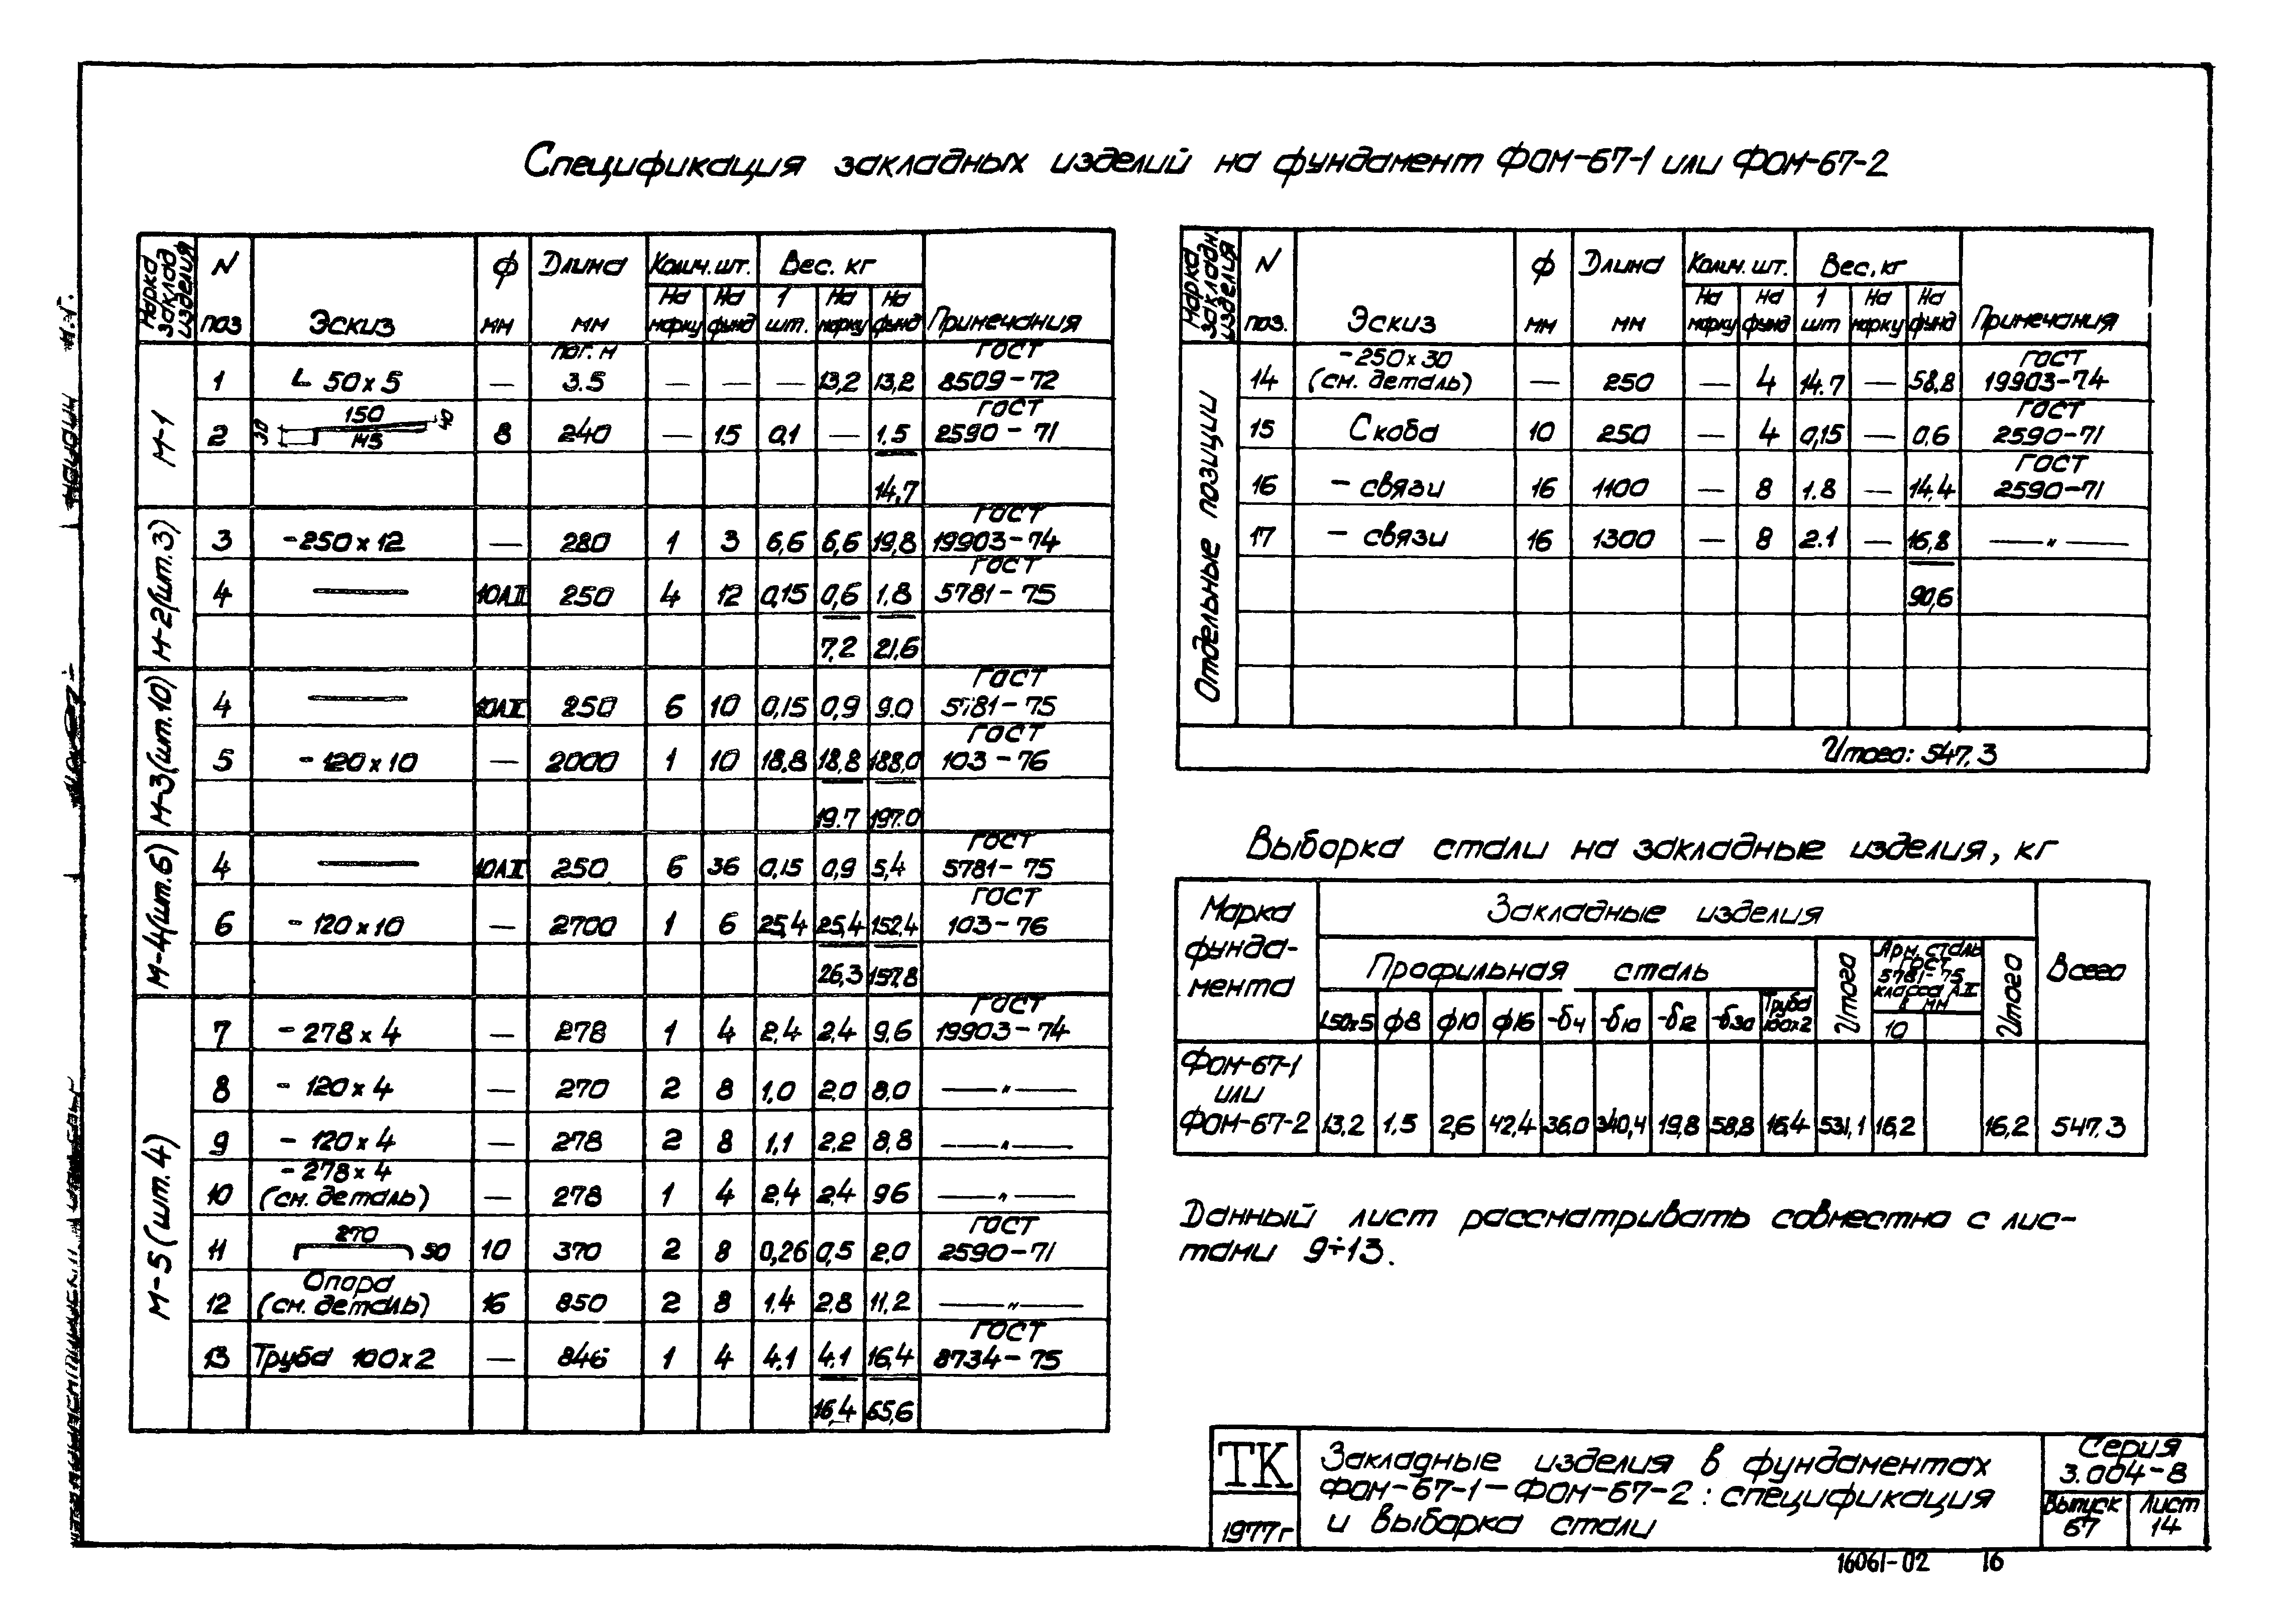 Спецификация закладных изделий на фундамент ФОМ-67-1 или ФОМ-67-2
Марка заклад. изделия | N поз | Эскиз | ф мм | Длина мм | Колич. шт. | Вес. кг | Примечания
На марку | На фунд | 1 шт. | На марку | На фунд
М-1
1 | L 50х5 | — | пог. м 3.5 | — | — | — | 13,2 | 13,2 | ГОСТ 8509-72
2 | 30 150 145 40 | 8 | 240 | — | 15 | 0,1 | — | 1,5 | ГОСТ 2590-71
14,7
М-2(шт.3)
3 | -250х12 | — | 280 | 1 | 3 | 6,6 | 6,6 | 19,8 | ГОСТ 19903-74
4 | — | 10АII | 250 | 4 | 12 | 0,15 | 0,6 | 1,8 | ГОСТ 5781-75
7,2 | 21,6
М-3(шт.10)
4 | — | 10АII | 250 | 6 | 10 | 0,15 | 0,9 | 9.0 | ГОСТ 5781-75
5 | -120х10 | — | 2000 | 1 | 10 | 18,8 | 18,8 | 188,0 | 
ГОСТ 103-76
19.7 | 197.0
М-4(шт.6)
4 | — | 10АII | 250 | 6 | 36 | 0,15 | 0,9 | 5,4 | ГОСТ 5781-75
6 | -120х10 | — | 2700 | 1 | 6 | 25,4 | 25,4 | 152,4 | ГОСТ 103-76
26,3 | 157.8
М-5(шт.4)
7 | -278х4 | — | 278 | 1 | 4 | 2,4 | 2,4 | 9,6 | ГОСТ 19903-74
8 | -120х4 | — | 270 | 2 | 8 | 1,0 | 2,0 | 8,0 | —"—
9 | -120х4 | — | 278 | 2 | 8 | 1,1 | 2,2 | 8,8 | —"—
10 | -278х4 (см. деталь) | — | 278 | 1 | 4 | 2,4 | 2,4 | 96 | —"—
11 | 270 50 | 10 | 370 | 2 | 8 | 0,26 | 0,5 | 2,0 | ГОСТ 2590-71
12 | Опора (см. деталь) | 16 | 850 | 2 | 8 | 1,4 | 2,8 | 11,2 | —"—
13 | Труба 100х2 | — | 846 | 1 | 4 | 4.1 | 4.1 | 16,4 | ГОСТ 8734-75
16,4 | 65,6
Марка закладн. изделия | N поз. | Эскиз | ф мм | Длина мм | Колич. шт. | Вес, кг | Примечания
На марку | На фунд | 1 шт | На марку | На фунд
Отдельные позиции
14 | -250х30 (см. деталь) | — | 250 | — | 4 | 14.7 | — | 58,8 | ГОСТ 19903-74
15 | Скоба | 10 | 250 | — | 4 | 0,15 | — | 0,6 | ГОСТ 2590-71
16 | - связи | 16 | 1100 | — | 8 | 1.8 | — | 14,4 | ГОСТ 2590-71
17 | - связи | 16 | 1300 | — | 8 | 2.1 | — | 16,8 | —"—
90,6
Итого: 547.3
Выборка стали на закладные изделия, кг
Марка фунда-мента | Закладные изделия | Всего
Профильная сталь | Итого | Арм. сталь ГОСТ 5781-75 класса АII в мм | Итого
L50х5 | ф8 | ф10 | ф16 | -б4 | -б10 | -б12 | -б30 | Труба 100х2 | 10
ФОМ-67-1
или
ФОМ-67-2 | 13,2 | 1.5 | 2,6 | 42,4 | 36,0 | 340,4 | 19,8 | 58,8 | 16,4 | 531,1 | 16,2 | 16,2 | 547.3
Данный лист рассматривать совместно с лис-
тами 9÷13.
ТК
1977г
Закладные изделия в фундаментах
ФОМ-67-1-ФОМ-67-2: спецификация
и выборка стали
Серия
3.004-8
Выпуск
67
Лист
14
16061-02 16